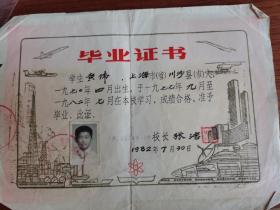 毕业证书
学生 伟，上海市(省)川沙县(市)人，
一九七〇年四月出生，于一九七七年九月至
一九八二年七月在本校学习，成绩合格，准予
毕业，此证。
校长 张
1982年7月30日